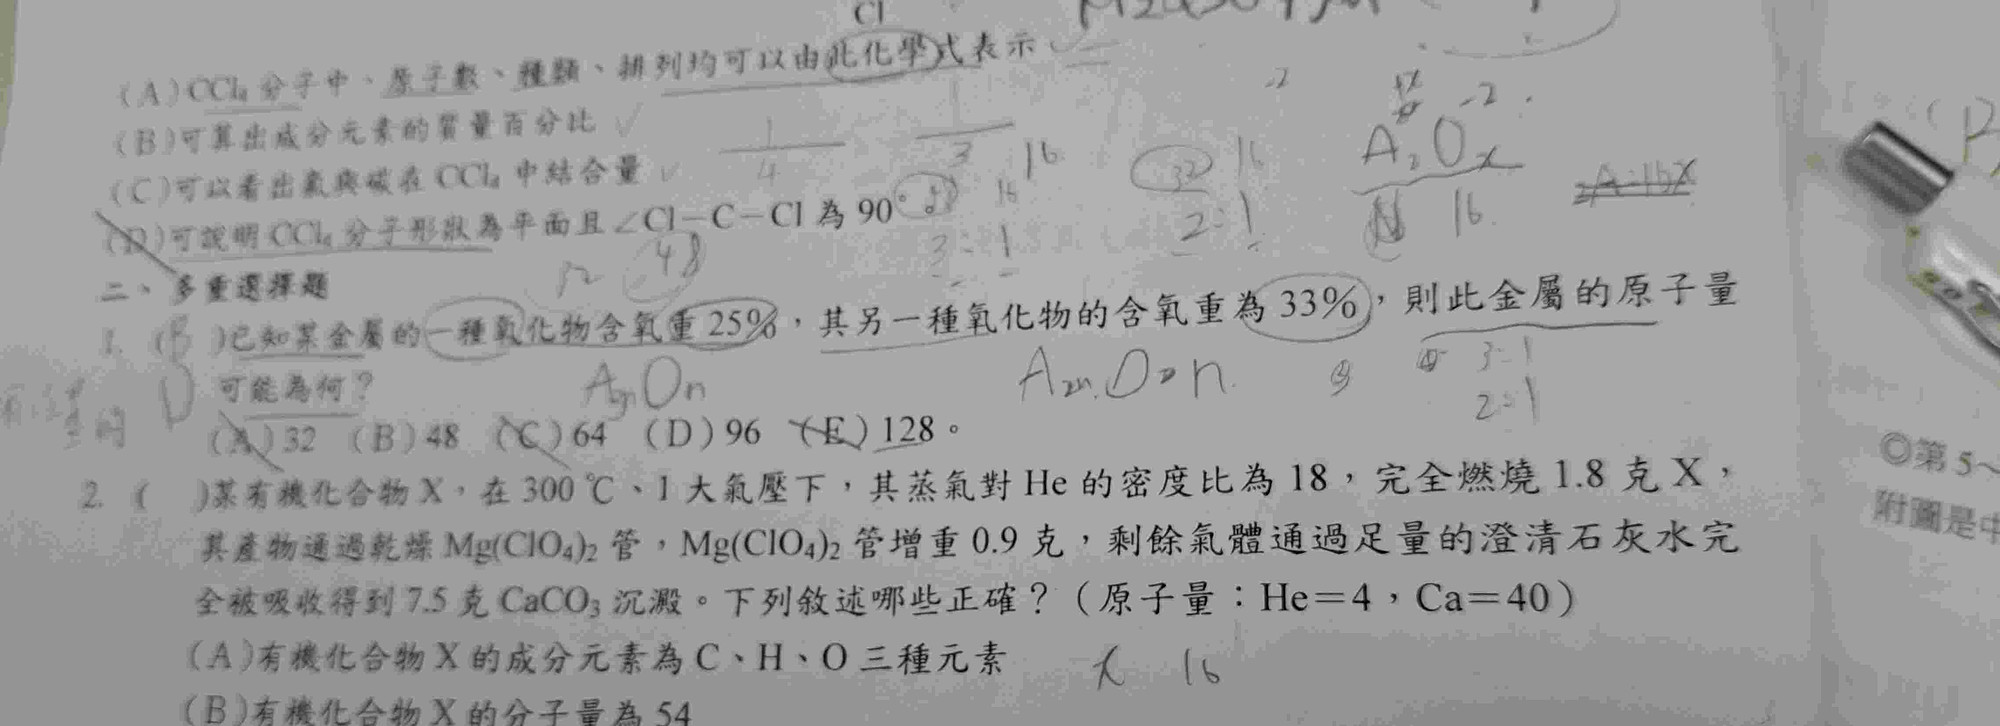 Cl
(A)CCl₄ 分子中、原子數、種類、排列均可以由此化學式表示
(B)可算出成分元素的質量百分比
(C)可以看出氯與碳在 CCl₄ 中結合量
(D)可說明 CCl₄ 分子形狀為平面且∠Cl－C－Cl 為 90°。
1
4
1
3
16
16
3:1
32 16
2:1
-2
-2
A₂Oₓ
16
2A:16X
32
48
二、多重選擇題
1. (B )已知某金屬的一種氧化物含氧重 25%，其另一種氧化物的含氧重為 33%，則此金屬的原子量
D 可能為何？
3:1
2:1
(A)32 (B)48 (C)64 (D)96 (E)128。
2. ( )某有機化合物 X，在 300 ℃、1 大氣壓下，其蒸氣對 He 的密度比為 18，完全燃燒 1.8 克 X，
其產物通過乾燥 Mg(ClO₄)₂ 管，Mg(ClO₄)₂ 管增重 0.9 克，剩餘氣體通過足量的澄清石灰水完
全被吸收得到 7.5 克 CaCO₃ 沉澱。下列敘述哪些正確？（原子量：He＝4，Ca＝40）
(A)有機化合物 X 的成分元素為 C、H、O 三種元素
x 16
(B)有機化合物 X 的分子量為 54
◎第 5～
附圖是中